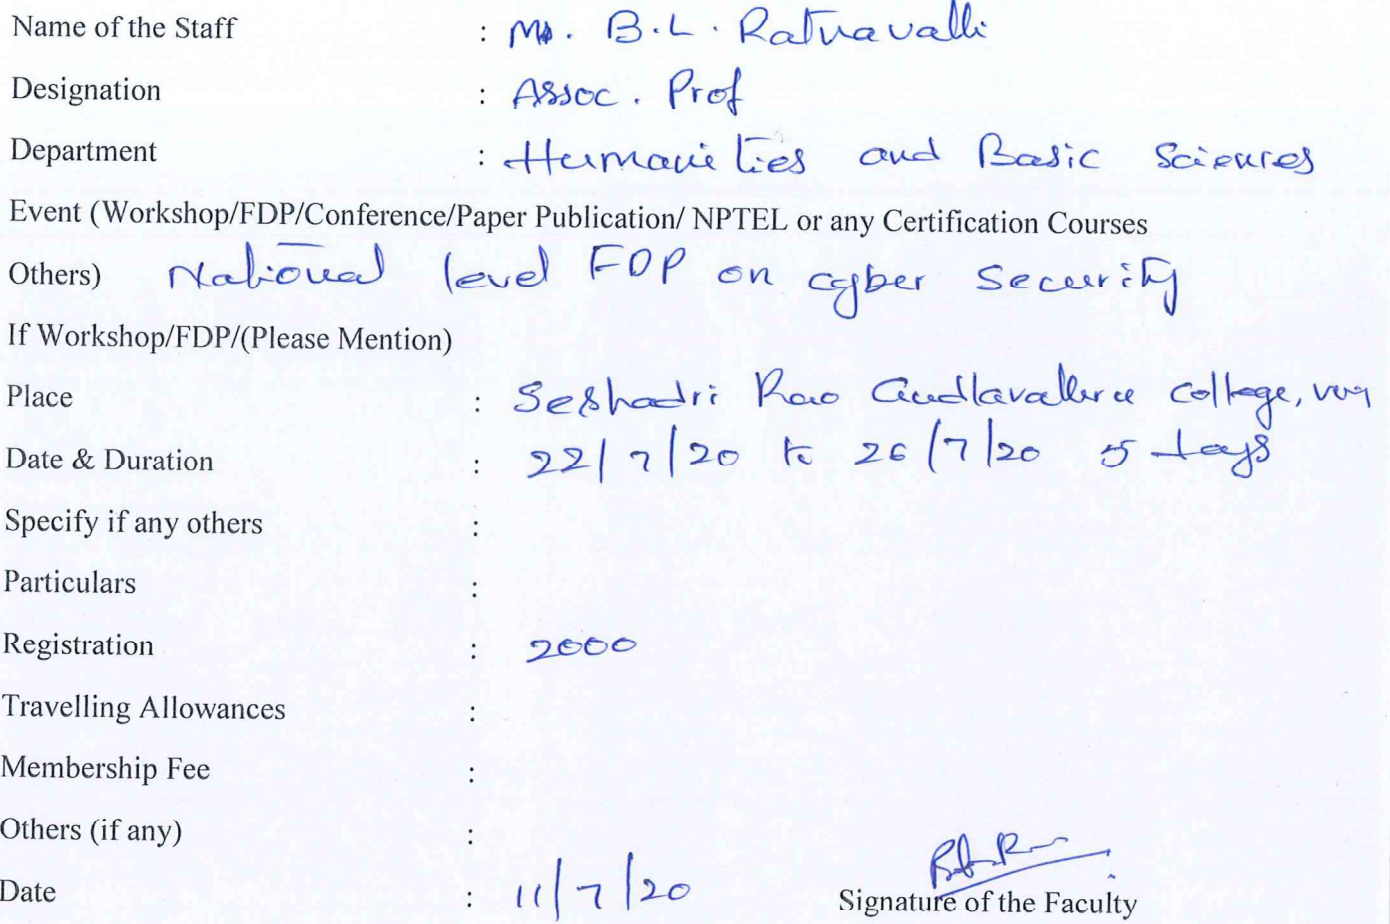 Name of the Staff : Ms. B.L. Ratnavalli
Designation : Assoc. Prof
Department : Humanities and Basic Sciences
Event (Workshop/FDP/Conference/Paper Publication/ NPTEL or any Certification Courses
Others) National level FDP on cyber security
If Workshop/FDP/(Please Mention)
Place : Seshadri Rao Gudlavalleru college,
Date & Duration : 22/7/20 to 26/7/20 5 days
Specify if any others :
Particulars :
Registration : 2000
Travelling Allowances :
Membership Fee :
Others (if any) :
Date : 11/7/20 Signature of the Faculty